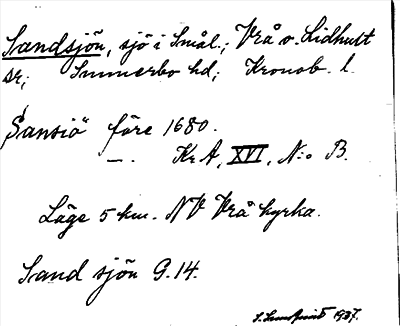 Sandsjön, sjö i Smål.; Vrå o. Lidhult
sr; Sunnerbo hd; Kronob. l.
"Sansiö" före 1680.
—. Kr A, XVI, N:o B.
Läge 5 km. NV Vrå kyrka.
Sand sjön G. 14.
1937.